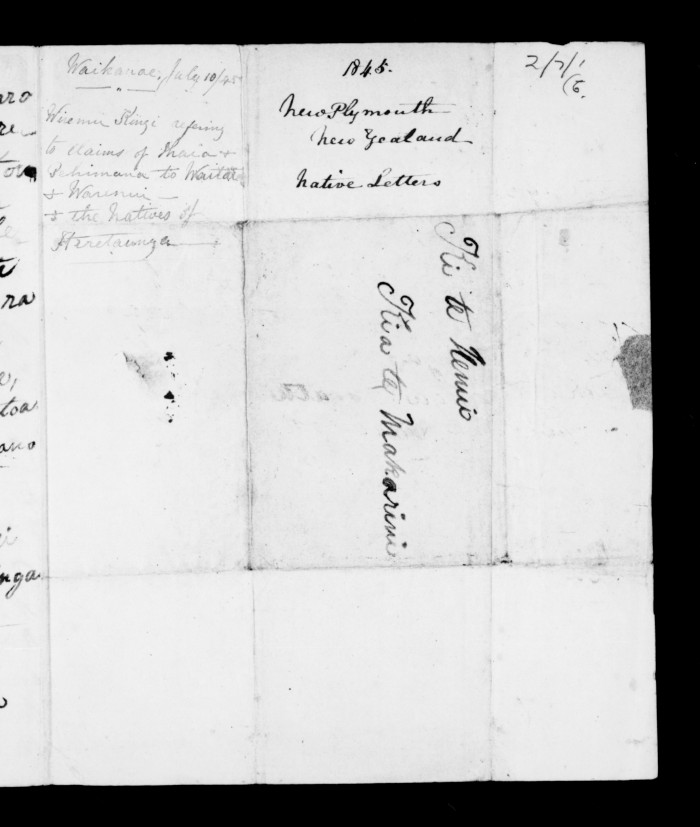 aro
re
to
te
ra
e,
toa
ano
nga
Waikanae, July 10/45
Wiremu Kingi refering
to claims of Ihaia &
Pehimana to Waitara
& Waremu
& the Natives of
Heretaunga
1845.
New Plymouth
New Zealand
Native Letters
Ki te Nemio
Kia te Makarini
2/7/1
(6.